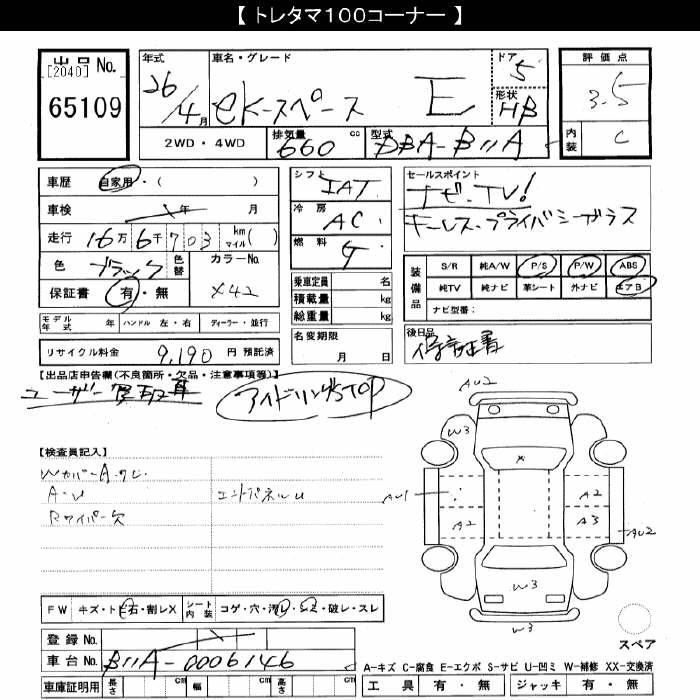 【 トレタマ100コーナー 】
出品 No.
[2040]
65109
年式 車名・グレード ドア 5
26/4月 eKスペース E 形状 HB
2WD・4WD 排気量 660 cc 型式 DBA-B11A
評価点
3.5
内装 C
車歴 自家用・( )
車検 年 月
走行 16万6千703 km マイル( )
色 ブラック 色替 カラーNo.
保証書 有・無 X42
モデル年式 年 ハンドル 左・右 ディーラー・並行
リサイクル料金 9,190 円 預託済
シフト IAT
冷房 AC
燃料 G
乗車定員 名
積載量 kg
総重量 kg
名変期限
月 日
セールスポイント
ナビ・TV!
キーレス・プライバシーガラス
装備品
S/R 純A/W P/S P/W ABS
純TV 純ナビ 革シート 外ナビ エアB
ナビ型番:
後日品
保証書
【出品店申告欄(不良箇所・欠品・注意事項等)】
ユーザー買取車 アイドリングSTOP
【検査員記入】
WカバーA
A・U エンドパネルU
Rワイパー欠
FW キズ・トビ石・割レX シート内装 コゲ・穴・汚レ・シミ・破レ・スレ
登録 No.
車台 No. B11A-0006146
車庫証明用 長さ cm 幅 cm 高さ cm
AU2
W3
X
AU1
A2
A2
A3
AU2
W3
W3
スペア
A-キズ C-腐食 E-エクボ S-サビ U-凹ミ W-補修 XX-交換済
工具 有・無 ジャッキ 有・無